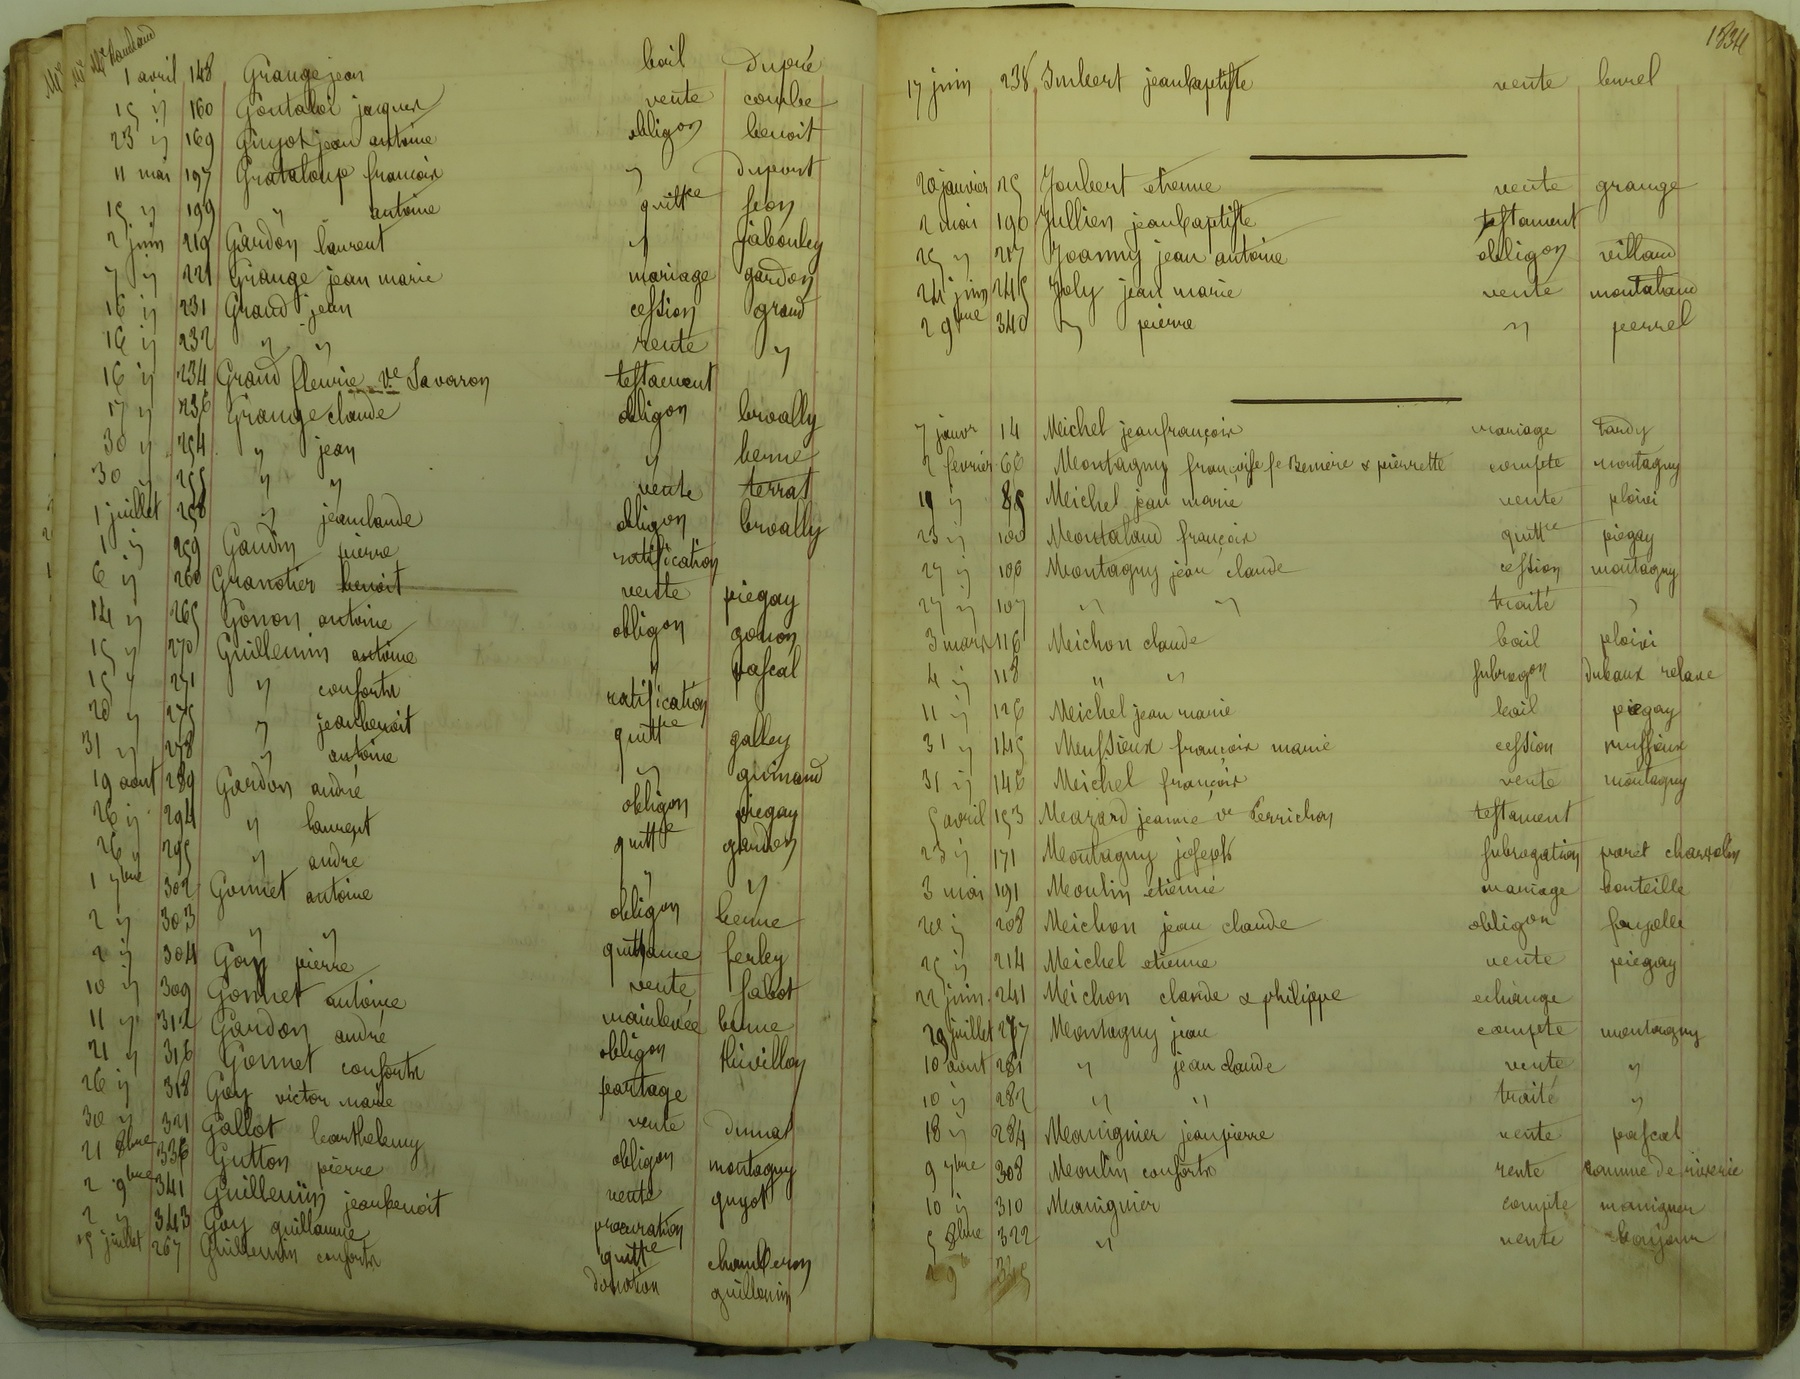 1 avril 148 Grange jean bail dupré
15 " 160 Goutaloi jacques vente combe
23 " 169 Guyot jean antoine obligon benoit
11 mai 197 Grataloup françois " dupont
15 " 199 " antoine quittce
2 juin 219 Gardon laurent " jabouley
7 " 221 Grange jean marie mariage gardon
16 " 231 Grand jean cession grand
16 " 232 " " vente "
16 " 234 Grand fleurie ve Savoron testament
17 " 236 Grange claude obligon broally
30 " 254 " jean " benne
30 " 255 " " vente terrat
1 juillet 258 " jeanclaude obligon broally
1 " 259 Gaudin pierre ratification
6 " 260 Granotier benoit vente piegay
14 " 265 Gonon antoine obligon gonon
15 " 270 Guillemin antoine " pascal
15 " 271 " consorts ratification
20 " 275 " jeanbenoit quittce galley
31 " 278 " antoine " guinand
19 aout 289 Gardon andré obligon piegay
26 " 294 " laurent quittce gardon
26 " 295 " andré " "
1 7bre 302 Gonnet antoine obligon benne
2 " 303 " " quittance ferley
2 " 304 Goy pierre vente sabot
10 " 309 Gonnet antoine mainlevée benne
11 " 312 Gardon andré obligon thivillon
21 " 316 Gonnet consorts partage
26 " 318 Goy victor marie vente
30 " 321 Gallot barthelemy obligon montagny
21 8bre 336 Gutton pierre vente guyot
2 9bre 341 Guillemin jeanbenoit procuration
2 " 343 Goy guillaume quittce chamberon
15 juillet 267 Guillemin consorts donation guillemin
1834
17 juin 238 Imbert jeanbaptiste vente burel
20 janvier 25 Joubert etienne vente grange
2 mai 190 Jullien jeanbaptiste testament
25 " 217 Joanny jean antoine obligon villand
24 juin 245 Joly jean marie vente montaland
2 9bre 340 " pierre " perrel
7 janvr 14 Meichel jeanfrançois mariage tardy
2 fevrier 66 Montagny françoise fe & pierrette compte montagny
19 " 85 Meichel jean marie vente ploivi
23 " 100 Montaland françois quittce piegay
27 " 106 Montagny jean claude cession montagny
27 " 107 " " traité "
3 mars 116 Meichon claude bail ploivi
4 " 118 " " subrogon
11 " 126 Meichel jean marie bail piegay
31 " 145 Meussieux françois marie cession mussieux
31 " 146 Meichel françois vente montagny
5 avril 153 Mazard jeanne ve Perrichon testament
23 " 171 Montagny joseph subrogation
3 mai 191 Moulin etienne mariage bouteille
20 " 208 Meichon jean claude obligon fayolle
25 " 214 Meichel etienne vente piegay
22 juin 241 Meichon claude & philippe echange
29 juillet 277 Montagny jean compte montagny
10 aout 281 " jean claude vente "
10 " 282 " " traité "
18 " 284 Mounignier jeanpierre vente pascal
9 7bre 308 Moulin consorts vente comune de riverie
10 " 310 Mounignier compte mounignier
5 8bre 322 " vente bonjour